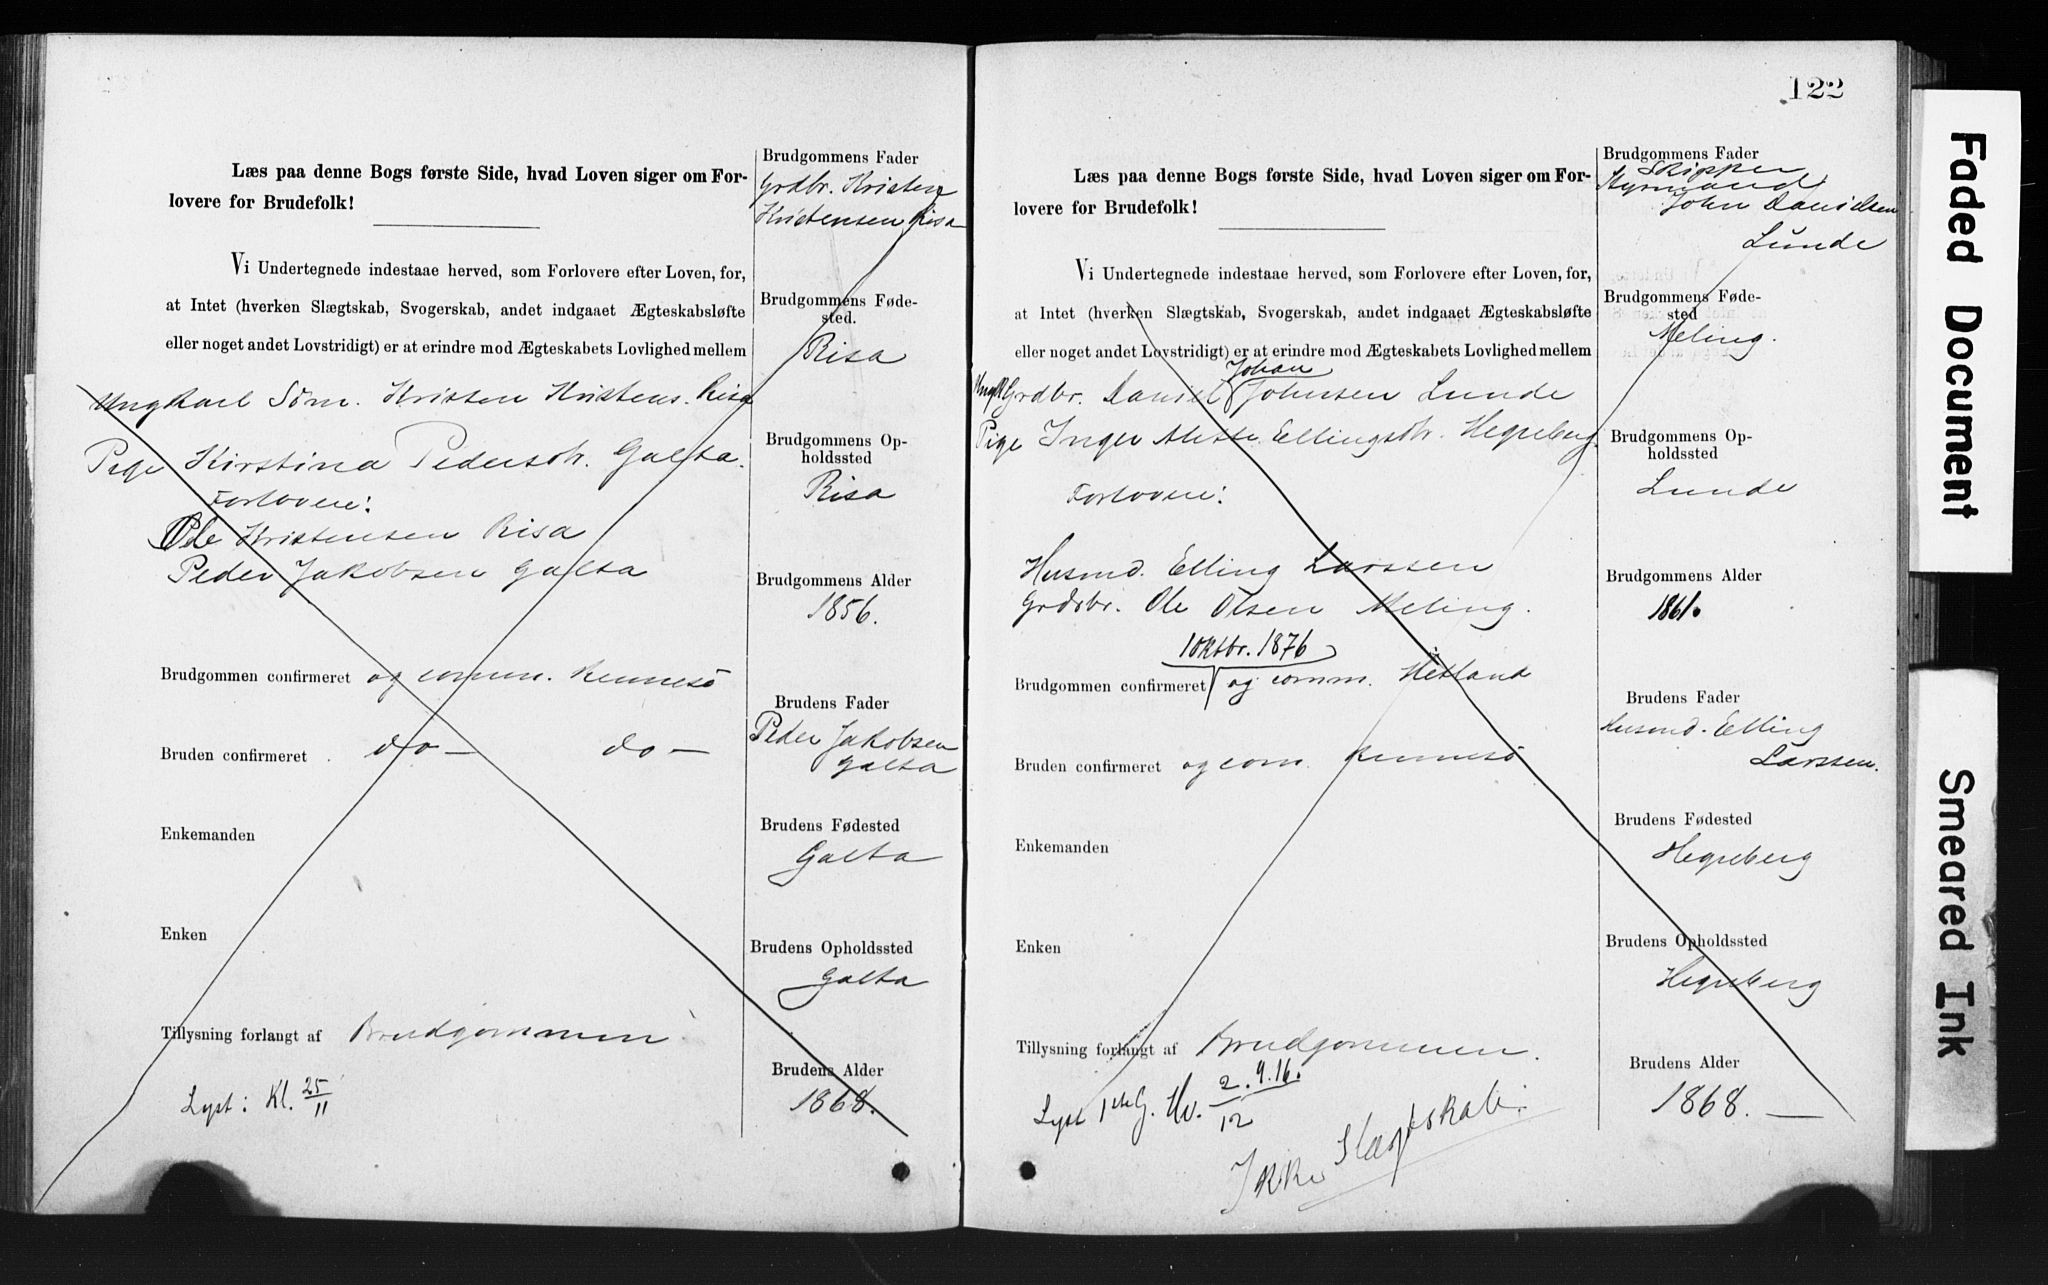 Læs paa denne Bogs første Side, hvad Loven siger om For-
lovere for Brudefolk!
Vi Undertegnede indestaae herved, som Forlovere efter Loven, for,
at Intet (hverken Slægtskab, Svogerskab, andet indgaaet Ægteskabsløfte
eller noget andet Lovstridigt) er at erindre mod Ægteskabets Lovlighed mellem
Ungkarl Söm. Kristen Kristens. Risa
Pige Kirstina Pedersdtr. Galta.
Forlovere:
Ole Kristensen Risa
Peder Jakobsen Galta
Brudgommen confirmeret og comm. Rennesö
Bruden confirmeret do — do —
Enkemanden
Enken
Tillysning forlangt af Brudgommen
Lyst: Kl. 25/11
Brudgommens Fader
Grdbr. Kristen
Kristensen Risa
Brudgommens Føde-
sted.
Risa
Brudgommens Op-
holdssted
Risa
Brudgommens Alder
1856.
Brudens Fader
Peder Jakobsen
Galta
Brudens Fødested
Galta
Brudens Opholdssted
Galta
Brudens Alder
1868.
122
Læs paa denne Bogs første Side, hvad Loven siger om For-
lovere for Brudefolk!
Vi Undertegnede indestaae herved, som Forlovere efter Loven, for,
at Intet (hverken Slægtskab, Svogerskab, andet indgaaet Ægteskabsløfte
eller noget andet Lovstridigt) er at erindre mod Ægteskabets Lovlighed mellem
Johan
Grdbr. Daniel Johnsen Lunde
Pige Inger Ellingsdtr. Hegreberg
Forlovere:
Husmd. Elling Larssen
Grdbr. Ole Olsen Meling.
1 Oktbr. 1876
Brudgommen confirmeret og comm. Hetland
Bruden confirmeret og com. Rennesö
Enkemanden
Enken
Tillysning forlangt af Brudgommen.
Lyst 1ste G. Hv. 2. 9. 16./12
Ikke Slægtskab.
Brudgommens Fader
Skipper
Styrmand
John Davidsen
Lunde
Brudgommens Føde-
sted
Meling.
Brudgommens Op-
holdssted
Lunde
Brudgommens Alder
1861.
Brudens Fader
Husmd. Elling
Larssen.
Brudens Fødested
Hegreberg
Brudens Opholdssted
Hegreberg
Brudens Alder
1868. —
Faded Document
Smeared Ink